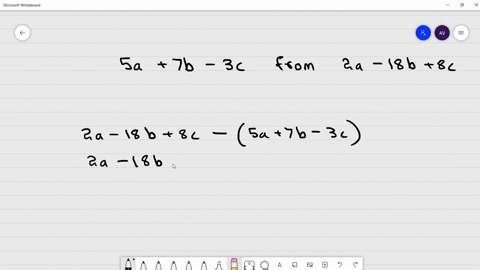 Microsoft Whiteboard
AV
5a + 7b - 3c from 2a - 18b + 8c
2a - 18b + 8c - (5a + 7b - 3c)
2a - 18b